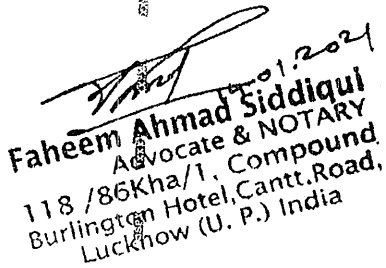 01.2021
Faheem Ahmad Siddiqui
Advocate & NOTARY
118 /86Kha/1, Compound
Burlington Hotel,Cantt.Road,
Lucknow (U. P.) India